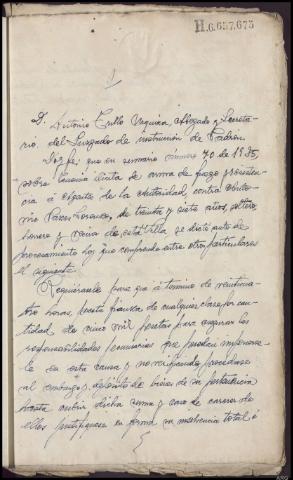 H.6.657.675
1
D. Antonio Tullo Vaqueira, Abogado y Secreta-
rio del Juzgado de instrucción de Padrón
Doy fé: que en sumario número 70 de 1935,
sobre tenencia ilícita de arma de fuego y resisten-
cia á agentes de la autoridad, contra Anto-
nio Lorenzo, de treinta y siete años, soltero,
y vecino de esta Villa, se dictó auto de
procesamiento hoy que comprende entre otros particulares
el siguiente
Requiérasele para que á término de veinticua-
tro horas preste fianza de cualquier clase por can-
tidad de cinco mil pesetas para asegurar las
responsabilidades pecuniarias que puedan imponerse-
le en esta causa y no verificándolo procédase
al embargo y depósito de bienes de su pertenencia
hasta cubrir dicha suma y caso de carecer de
ellos justifíquese en forma su insolvencia total ó